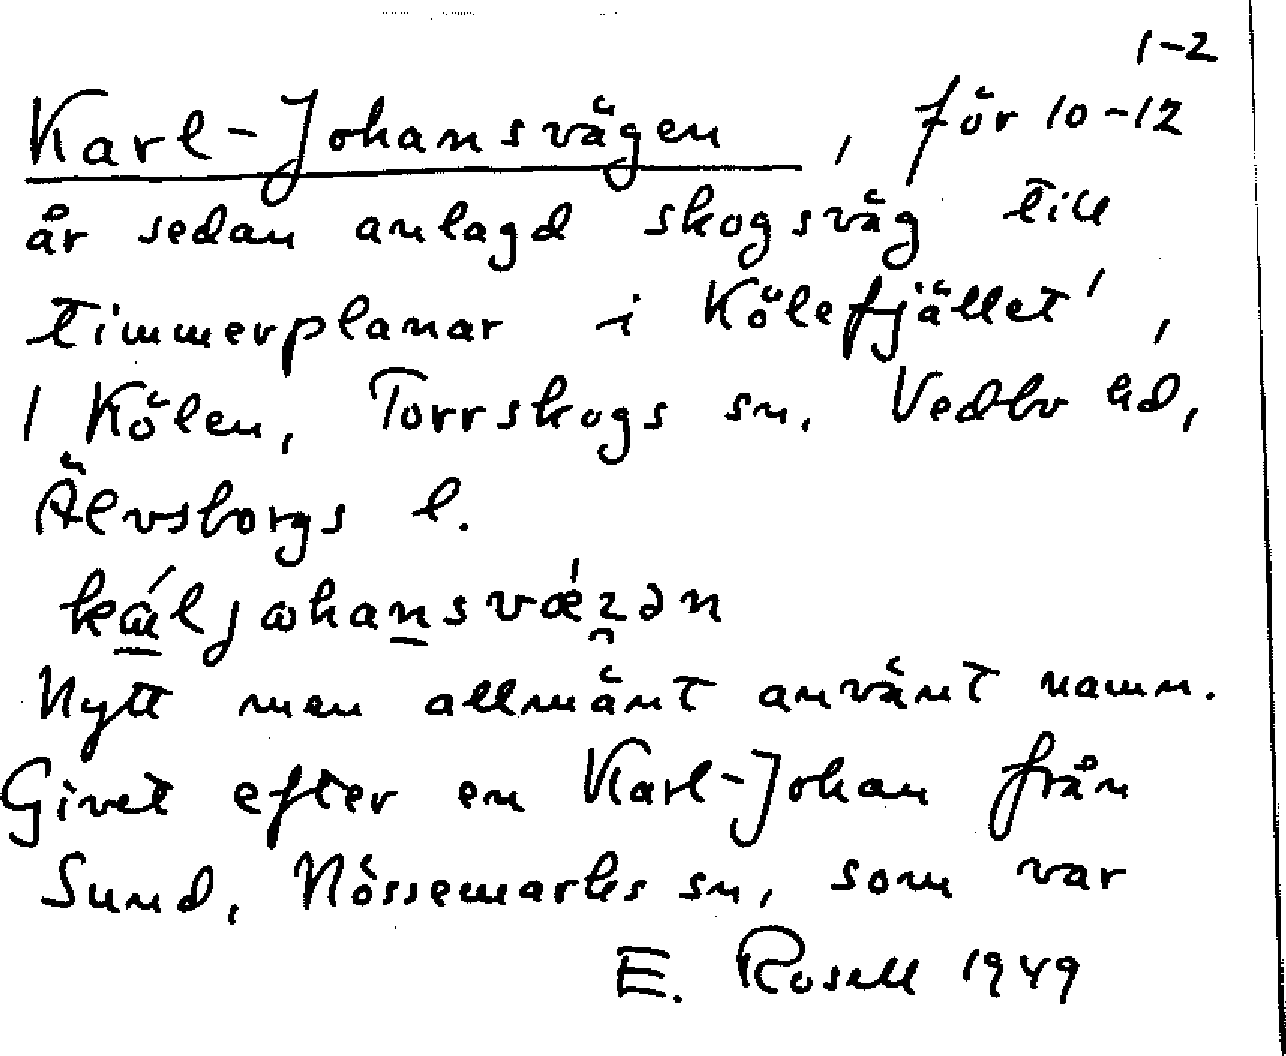 1-2
Karl-Johansvägen, för 10-12
år sedan anlagd skogsväg till
timmerplanar i Kölefjället,
/ Kölen, Torrskogs sn. Vedbo hd,
Älvsborgs l.
Nytt men allmänt använt namn.
Givet efter en Karl-Johan från
Sund, Nössemarks sn, som var
E. Rosell 1949